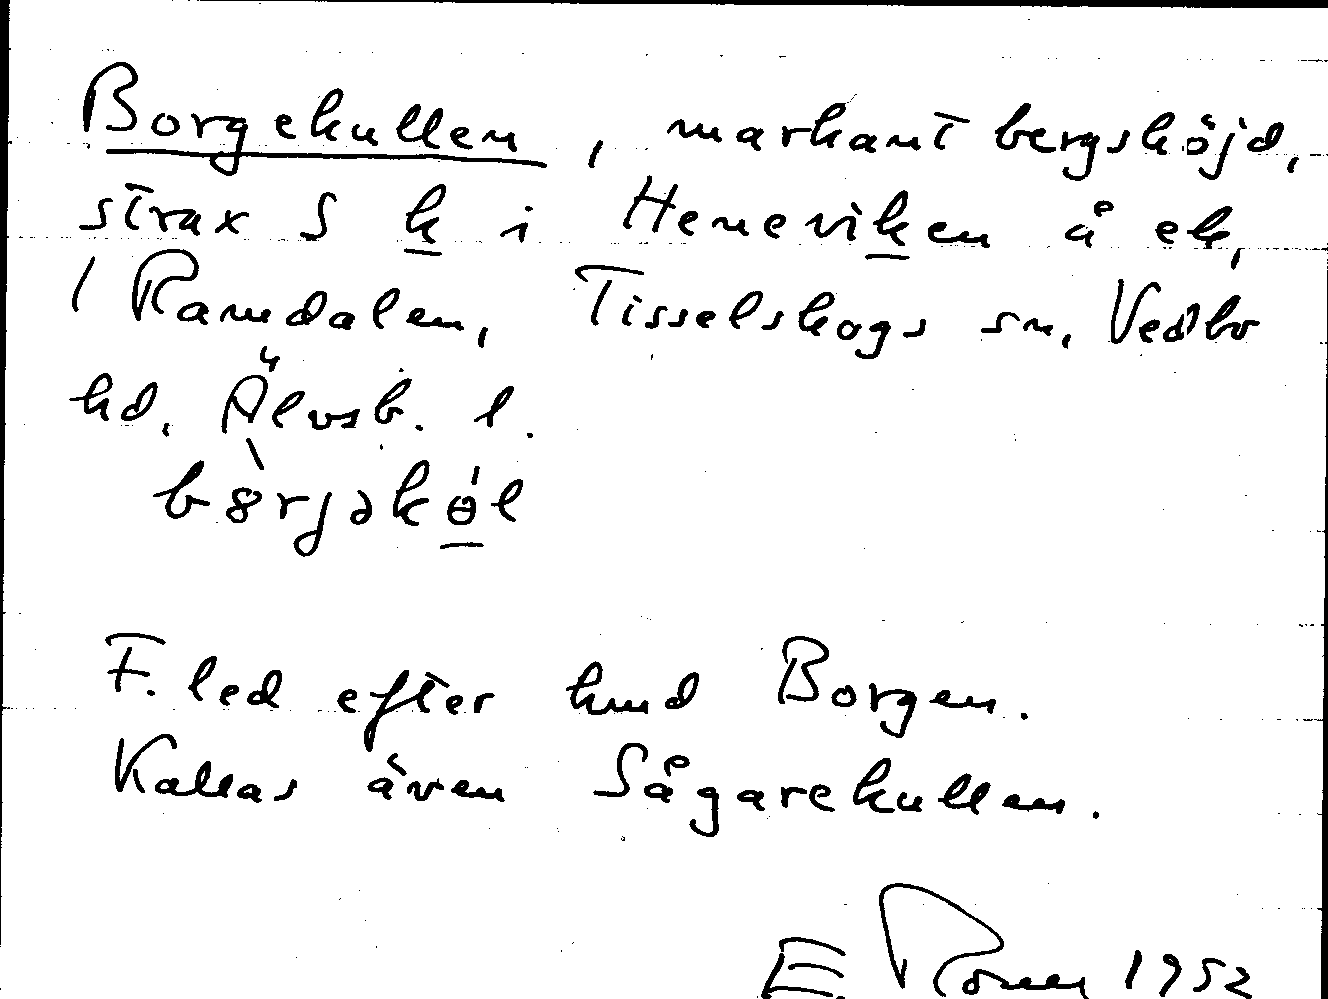 Borgekullen, markant bergshöjd,
strax S k i Heneviken å ek,
1 Ramdalen, Tisselskogs sn, Vedbo
hd, Älvsb. l.
F. led efter hmd Borgen.
Kallas även Sågarekullen.
E 1952